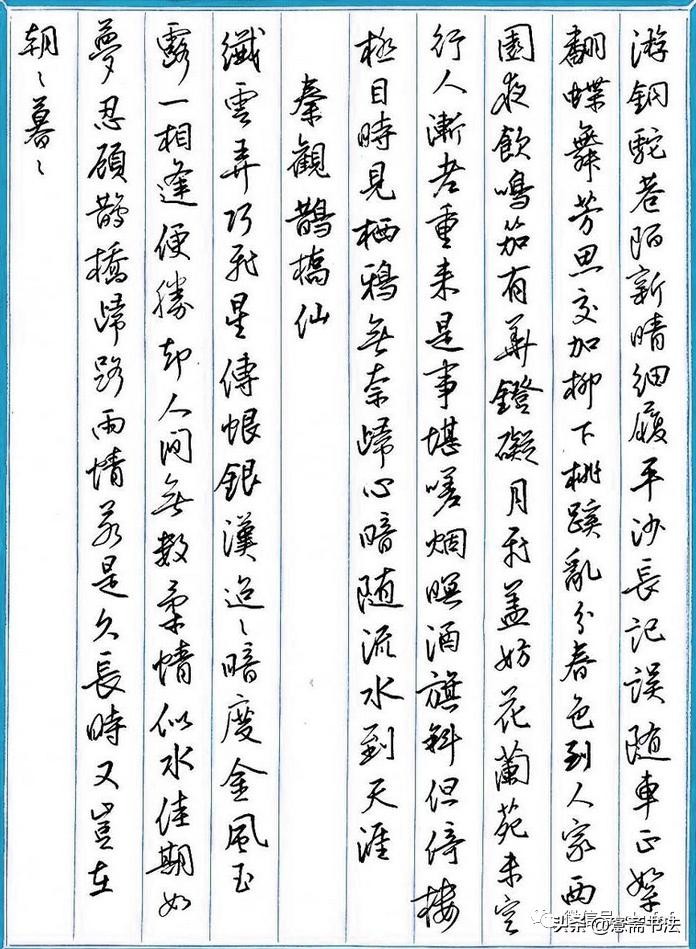 游銅駝巷陌新晴細履平沙長記誤随車正絮
翻蝶舞芳思交加柳下桃蹊亂分春色到人家西
園夜飲鳴笳有華鐙礙月飛蓋妨花蘭苑未空
行人漸老重来是事堪嗟烟暝酒旗斜但倚楼
極目時見栖鴉無奈歸心暗随流水到天涯
秦觀鵲橋仙
纖雲弄巧飛星傳恨銀漢迢〻暗度金風玉
露一相逢便勝却人间無数柔情似水佳期如
夢忍顧鵲橋歸路兩情若是久長時又豈在
朝〻暮〻
头条@斋书法